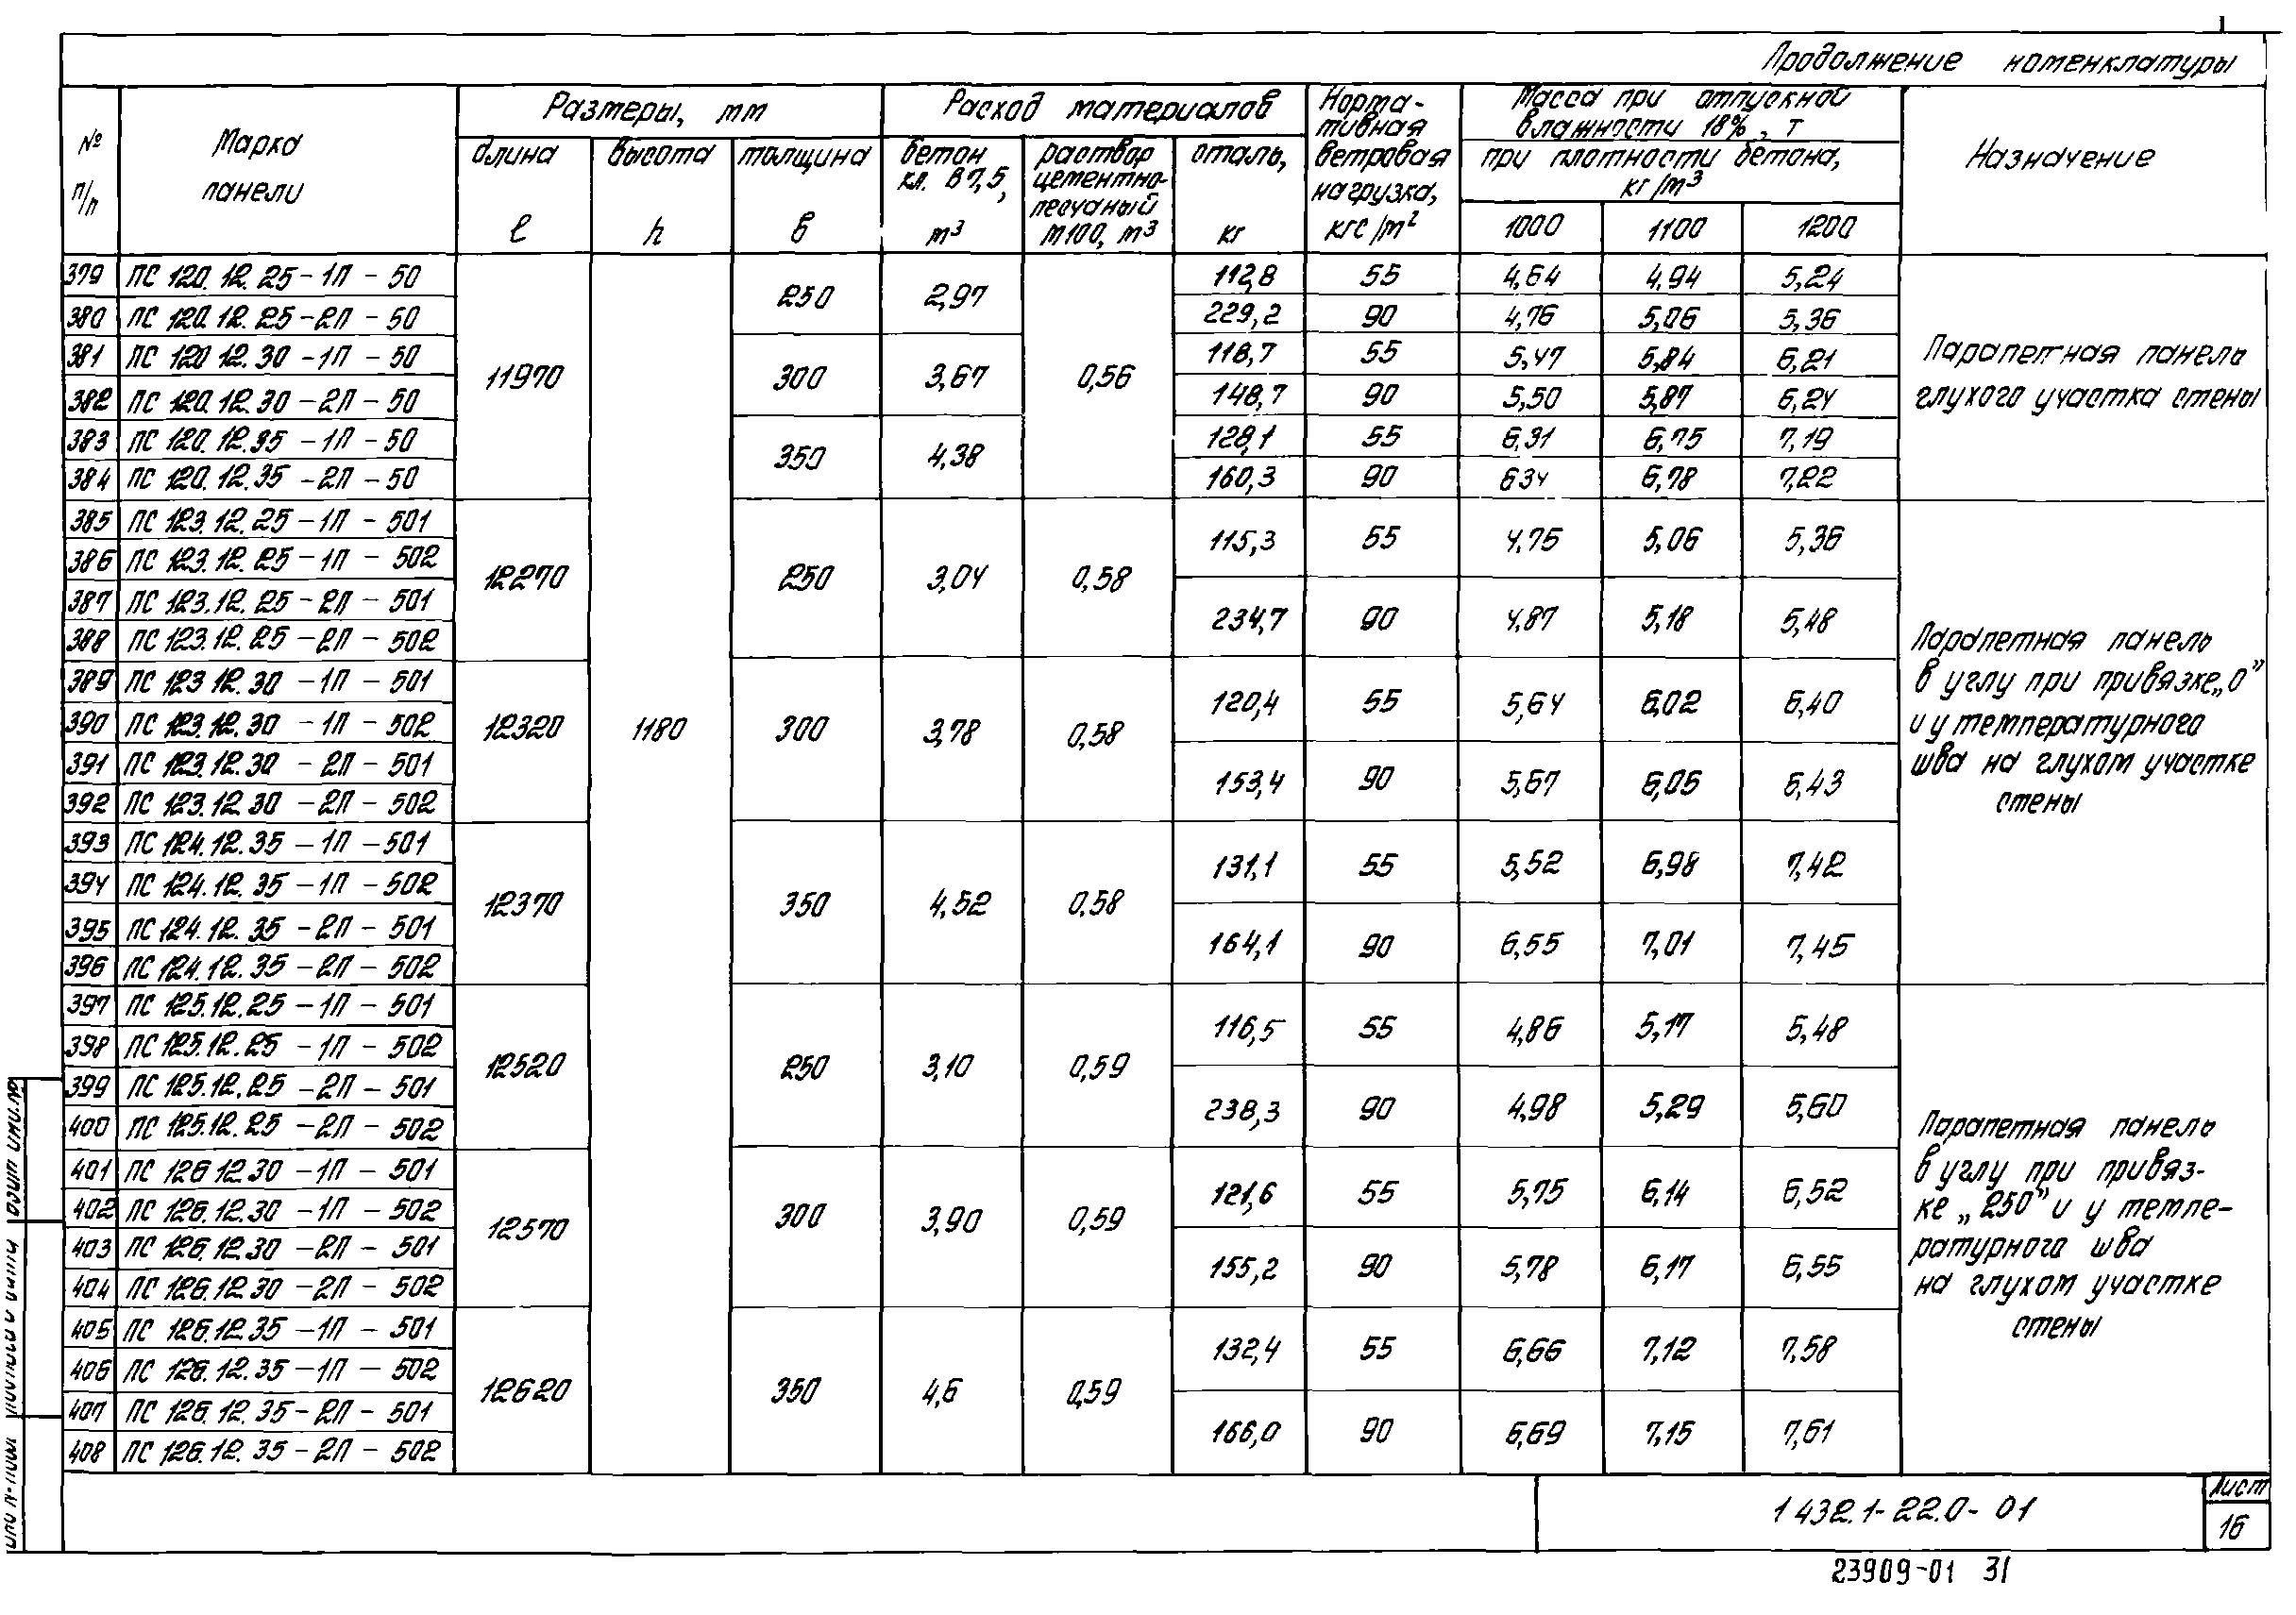 Продолжение номенклатуры
№ п/п
Марка панели
Размеры, мм
Расход материалов
Нормативная ветровая нагрузка, кгс/м²
Масса при отпускной влажности 18%, т
Назначение
длина ℓ
высота h
толщина в
бетон кл. В7,5, м³
раствор цементно-песчаный М100, м³
сталь, кг
при плотности бетона, кг/м³
1000 1100 1200
379 ПС 120.12.25-1П-50 11970 1180 250 2,97 0,56 112,8 55 4,64 4,94 5,24 Парапетная панель глухого участка стены
380 ПС 120.12.25-2П-50 229,2 90 4,76 5,06 5,36
381 ПС 120 12.30-1П-50 300 3,67 118,7 55 5,47 5,84 6,21
382 ПС 120.12.30-2П-50 148,7 90 5,50 5,87 6,24
383 ПС 120.12.35-1П-50 350 4,38 128,1 55 6,31 6,75 7,19
384 ПС 120.12.35-2П-50 160,3 90 634 6,78 7,22
385 ПС 123.12.25-1П-501 12270 250 3,04 0,58 115,3 55 4,75 5,06 5,36
386 ПС 123.12.25-1П-502
387 ПС 123.12.25-2П-501 234,7 90 4,87 5,18 5,48
388 ПС 123.12.25-2П-502
Парапетная панель
в углу при привязке „0”
и у температурного
шва на глухом участке
стены
389 ПС 123 12.30-1П-501 12320 300 3,78 0,58 120,4 55 5,64 6,02 6,40
390 ПС 123.12.30-1П-502
391 ПС 123.12.30-2П-501 153,4 90 5,67 6,05 6,43
392 ПС 123.12.30-2П-502
393 ПС 124.12.35-1П-501 12370 350 4,52 0,58 131,1 55 5,52 6,98 7,42
394 ПС 124.12.35-1П-502
395 ПС 124.12.35-2П-501 164,1 90 6,55 7,01 7,45
396 ПС 124.12.35-2П-502
397 ПС 125.12.25-1П-501 12520 250 3,10 0,59 116,5 55 4,86 5,17 5,48
398 ПС 125.12.25-1П-502
399 ПС 125.12.25-2П-501 238,3 90 4,98 5,29 5,60
400 ПС 125.12.25-2П-502
Парапетная панель
в углу при привяз-
ке „250” и у темпе-
ратурного шва
на глухом участке
стены
401 ПС 126 12.30-1П-501 12570 300 3,90 0,59 121,6 55 5,75 6,14 6,52
402 ПС 126.12.30-1П-502
403 ПС 126.12.30-2П-501 155,2 90 5,78 6,17 6,55
404 ПС 126.12.30-2П-502
405 ПС 126.12.35-1П-501 12620 350 4,6 0,59 132,4 55 6,66 7,12 7,58
406 ПС 126.12.35-1П-502
407 ПС 126.12.35-2П-501 166,0 90 6,69 7,15 7,61
408 ПС 126.12.35-2П-502
1 432.1-22.0-01
Лист
16
23909-01 31